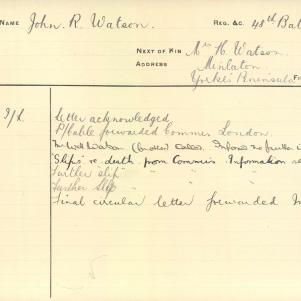 NAME John. R. Watson. REG. &C. 48th Bat
NEXT OF KIN Mrs H. Watson.
ADDRESS Minlaton.
Yorke's Peninsula
Letter acknowledged.
P/Cable forwarded Commis London.
Watson (brother) called. Informed no further
"Slips" re. death from Commis. Information re
Further slip " " "
Further Slip " "
Final circular letter forwarded